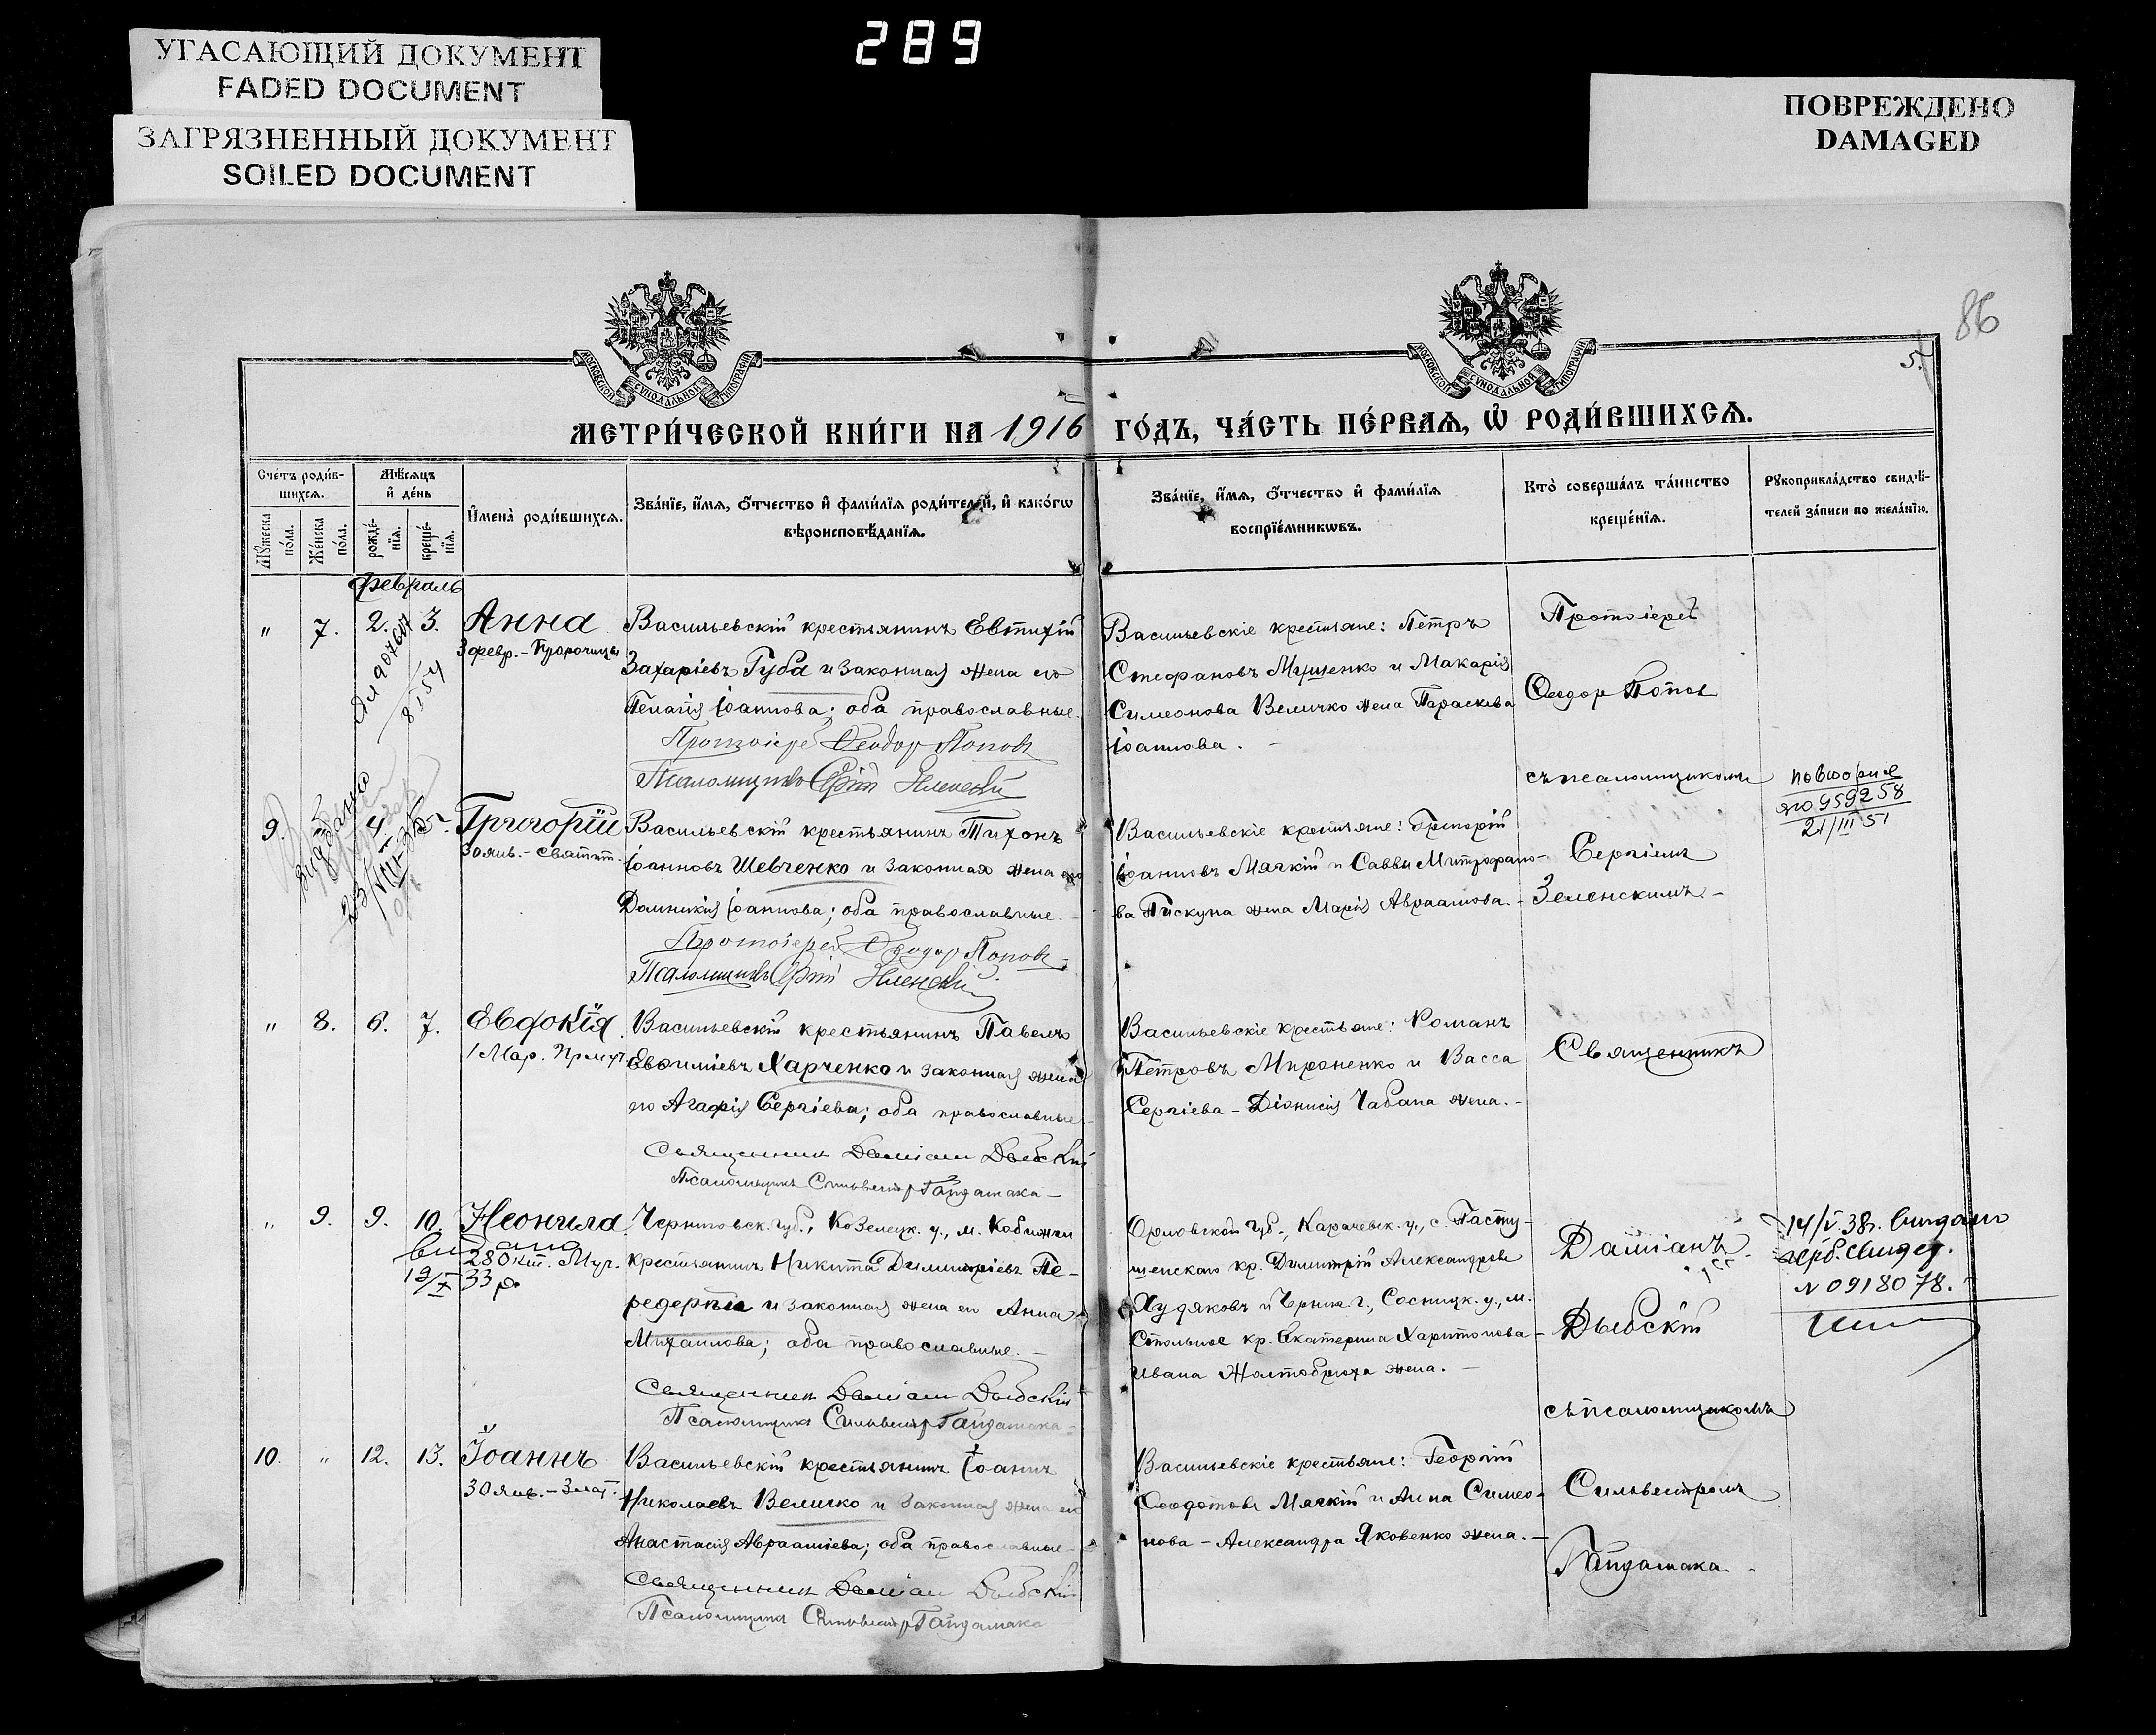 289
УГАСАЮЩИЙ ДОКУМЕНТ
FADED DOCUMENT
ЗАГРЯЗНЕННЫЙ ДОКУМЕНТ
SOILED DOCUMENT
ПОВРЕЖДЕНО
DAMAGED
86
5.
МОСКОВСКОЙ СѴНОДАЛЬНОЙ ТИПОГРАФІИ
МОСКОВСКОЙ СѴНОДАЛЬНОЙ ТИПОГРАФІИ
МЕТРИ́ЧЕСКОЙ КНИ́ГИ НА 1916 ГО́ДЪ, ЧА́СТЬ ПЕ́РВАѦ, Ѡ҆ РОДИ́ВШИХСѦ.
Сче́тъ роди́в-
шихсѧ.
Мꙋ́жеска по́ла.
Же́нска по́ла.
Мѣ́сѧцъ
и҆ де́нь
рожде́-
нїѧ.
креще́-
нїѧ.
И҆мена̀ роди́вшихсѧ.
Зва́нїе, и҆́мѧ, ѻ҆́тчество и҆ фами́лїѧ роди́телей, и҆ како́гѡ
вѣроисповѣ́данїѧ.
Зва́нїе, и҆́мѧ, ѻ҆́тчество и҆ фами́лїѧ
воспрїе́мникѡвъ.
Кто̀ соверша́лъ та́инство
креще́нїѧ.
Рꙋкоприкла́дство свидѣ́-
телей за́писи по жела́нїю.
февраль
" 7. 2. 3. Анна
3 февр. - Пророчицы
Васильевскій крестьянинъ Евтихій
Захаріевъ Губа и законная жена его
Пелагія Іоаннова; оба православные.
Протоіерей Ѳеодор Поповъ
Псаломщикъ Сергій Зеленскій
Васильевскіе крестьяне: Петръ
Стефановъ Мущенко и Макарія
Симеонова Величко жена Параскева
Іоаннова. -
Протоіерей
Ѳеодор Попов
съ псаломщикомъ
9. " 4. 5. Григорій
30 янв. - Святит.
видано
Васильевскій крестьянинъ Тихонъ
Іоанновъ Шевченко и законная жена его
Домникія Іоаннова; оба православные. -
Протоіерей Ѳеодор Поповъ
Псаломщикъ Сергій Зеленскій
Васильевскіе крестьяне: Григорій
Іоанновъ Мячкій и Саввы Митрофано-
ва Пискуна жена Марія Авраамова. -
Сергіемъ
Зеленскимъ -
повторне
яю 959258
21/III 51
" 8. 6. 7. Евдокія.
1 Мар. Прмуч.
Васильевскій крестьянинъ Павелъ
Евѳиміевъ Харченко и законная жена
его Агафія Сергіева; оба православные -
Священник Даміан Дыбскій
Псаломщикъ Сильвестр Гайдамака -
Васильевскіе крестьяне: Романъ
Петровъ Мироненко и Васса
Сергіева - Діонисія Чабана жена. -
Священникъ
" 9. 9. 10. Неонила
видано
28 Окт. Муч.
19/X 33 р
Черниговск. губ., Козелецк. у., м. Кобижчи
крестьянинъ Никита Димитріевъ Пе-
редерiи и законная жена его Анна
Михаилова; оба православные. -
Священник Даміан Дыбскій
Псаломщикъ Сильвестр Гайдамака -
Орловской губ., Карачевск. у., с. Пасту-
шенскаго кр. Димитрій Александровъ
Худяковъ и Черниг. г., Сосницк. у., м.
Стольное кр. Екатерина Харитонова -
Ивана Жолтобрюха жена. -
Даміанъ
Дыбскій
съ псаломщикомъ
14/V 38г. видано
герб. свидет.
№ 0918078.
10. " 12. 13. Іоаннъ
30 янв. - Злат.
Васильевскій крестьянинъ Іоаннъ
Николаевъ Величко и законная жена его
Анастасія Авраамiева; оба православные -
Священник Даміан Дыбскій
Псаломщикъ Сильвестр Гайдамака
Васильевскіе крестьяне: Георгій
Ѳеодотовъ Мячкій и Анна Симео-
нова - Александра Яковенко жена. -
Сильвестромъ
Гайдамака.